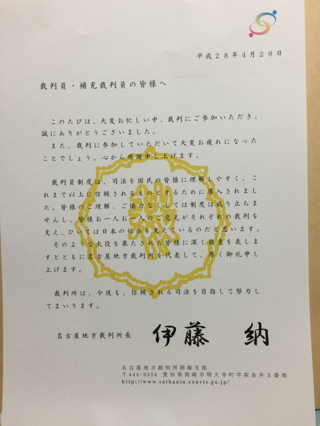 平成28年4月28日
裁判員・補充裁判員の皆様へ
このたびは、大変お忙しい中、裁判にご参加いただき、
誠にありがとうございました。
また、裁判に参加していただいて大変お疲れになった
ことでしょう。心から感謝申し上げます。
裁判員制度は、司法を国民の皆様に理解しやすく、こ
れまで以上に信頼されるものとするために導入されまし
た。皆様のご理解、ご協力なくしては制度は成り立ちま
せんし、皆様お一人お一人のご意見がそれぞれの裁判を
支え、ひいては日本の社会を支えているのだと思います。
そのような大役を果たされた皆様に深く敬意を表しま
すとともに名古屋地方裁判所を代表して、厚く御礼申し
上げます。
裁判所は、今後も、信頼される司法を目指して努力し
てまいります。
名古屋地方裁判所長 伊藤 納
名古屋地方裁判所岡崎支部
〒444-8554 愛知県岡崎市明大寺町字奈良井3番地
http://www.saibanin.courts.go.jp/